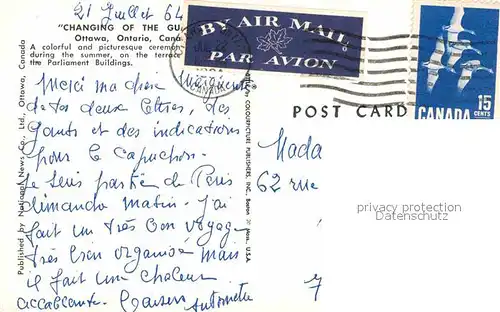 21 Juillet 64
"CHANGING OF THE GU
Ottawa, Ontario, Cana
A colorful and picturesque ceremon
during the summer, on the terrace
the Parliament Buildings.
BY AIR MAIL
PAR AVION
CANADA
15
CENTS
POST CARD
Merci ma chère
de tes deux lettres, des
gants et des indications
pour le capuchon.
Je suis partie de Paris
dimanche matin. J'ai
fait un très bon voyage
très bien organisé mais
il fait une chaleur
accablante. Baisers
Antoinette
Nada
62 rue
7
privacy protection
Datenschutz
Published by National News Co., Ltd., Ottawa, Canada
COLOURPICTURE PUBLISHERS, INC., Boston Mass., U.S.A.